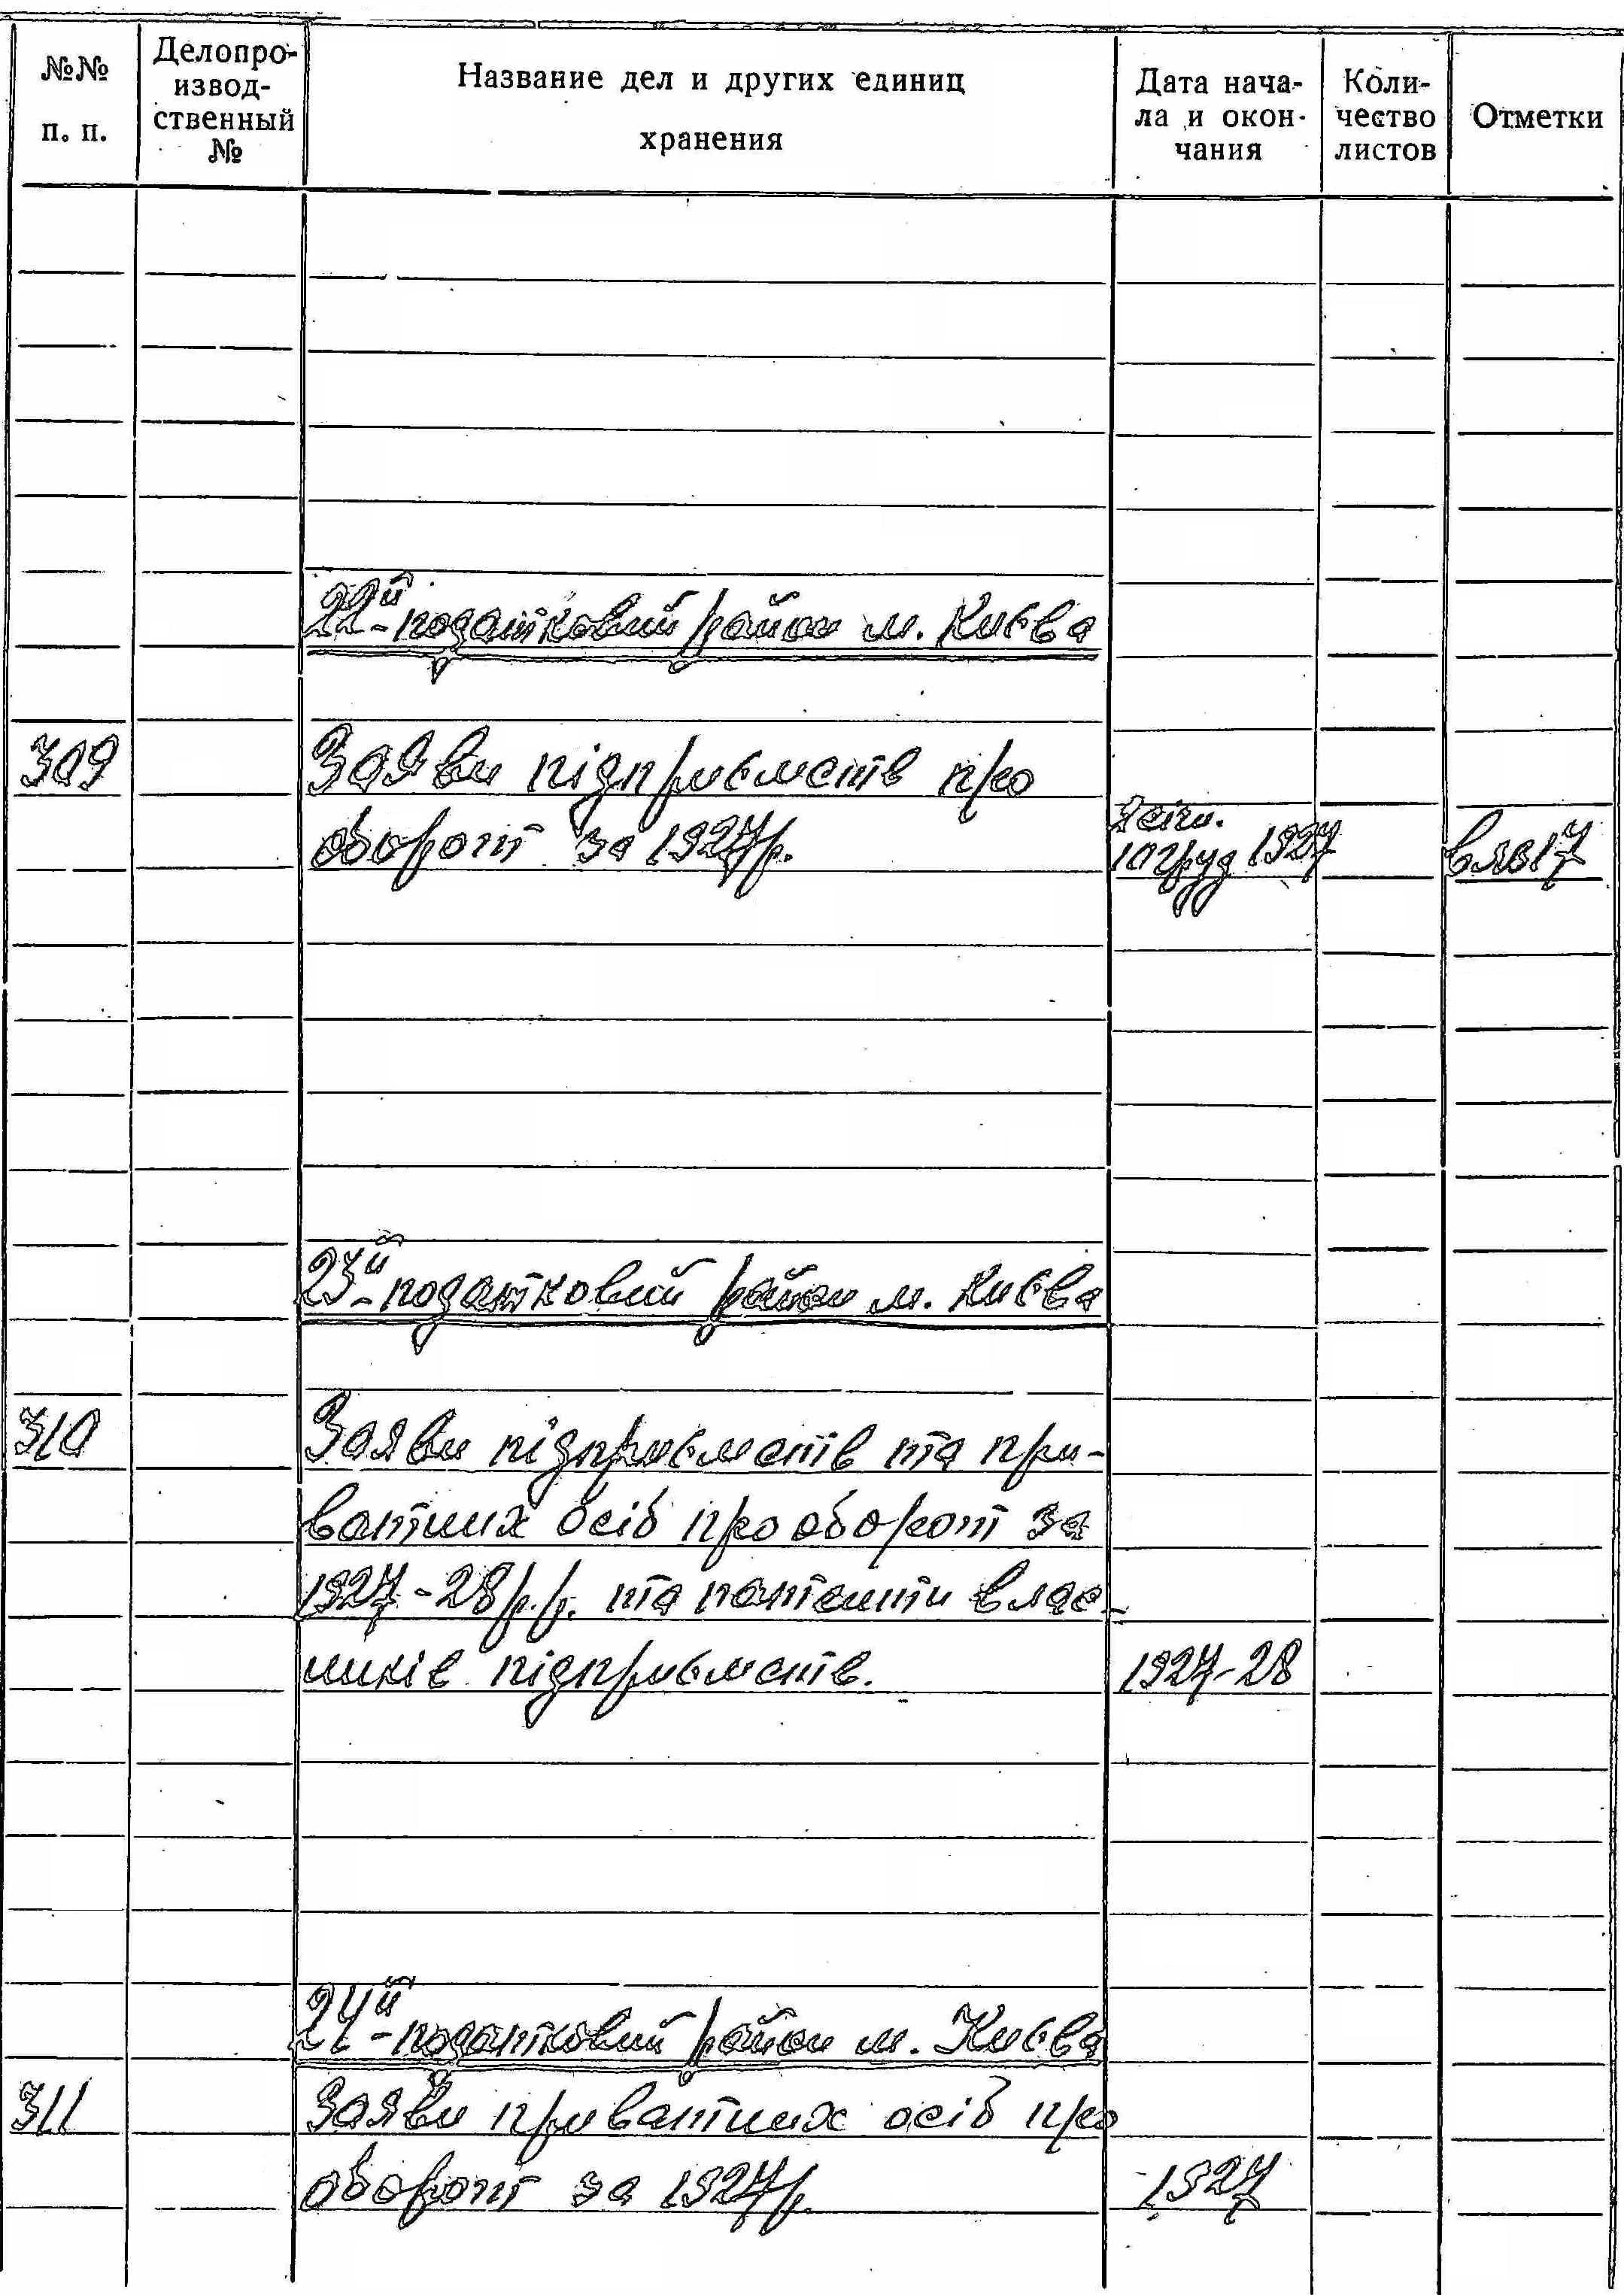 №№ п. п.
Делопро-
извод-
ственный
№
Название дел и других единиц
хранения
Дата нача-
ла и окон-
чания
Коли-
чество
листов
Отметки
22й-податковий район м. Києва
309 Заяви підприємств про
оборот за 1927р.
січн.
10 груд 1927
23й-податковий район м. Києва
310 Заяви підприємств та при-
ватних осіб про оборот за
1927-28р.р. та патенти влас-
ників підприємств. 1927-28
24й-податковий район м. Києва
311 Заяви приватних осіб про
оборот за 1927р. 1927